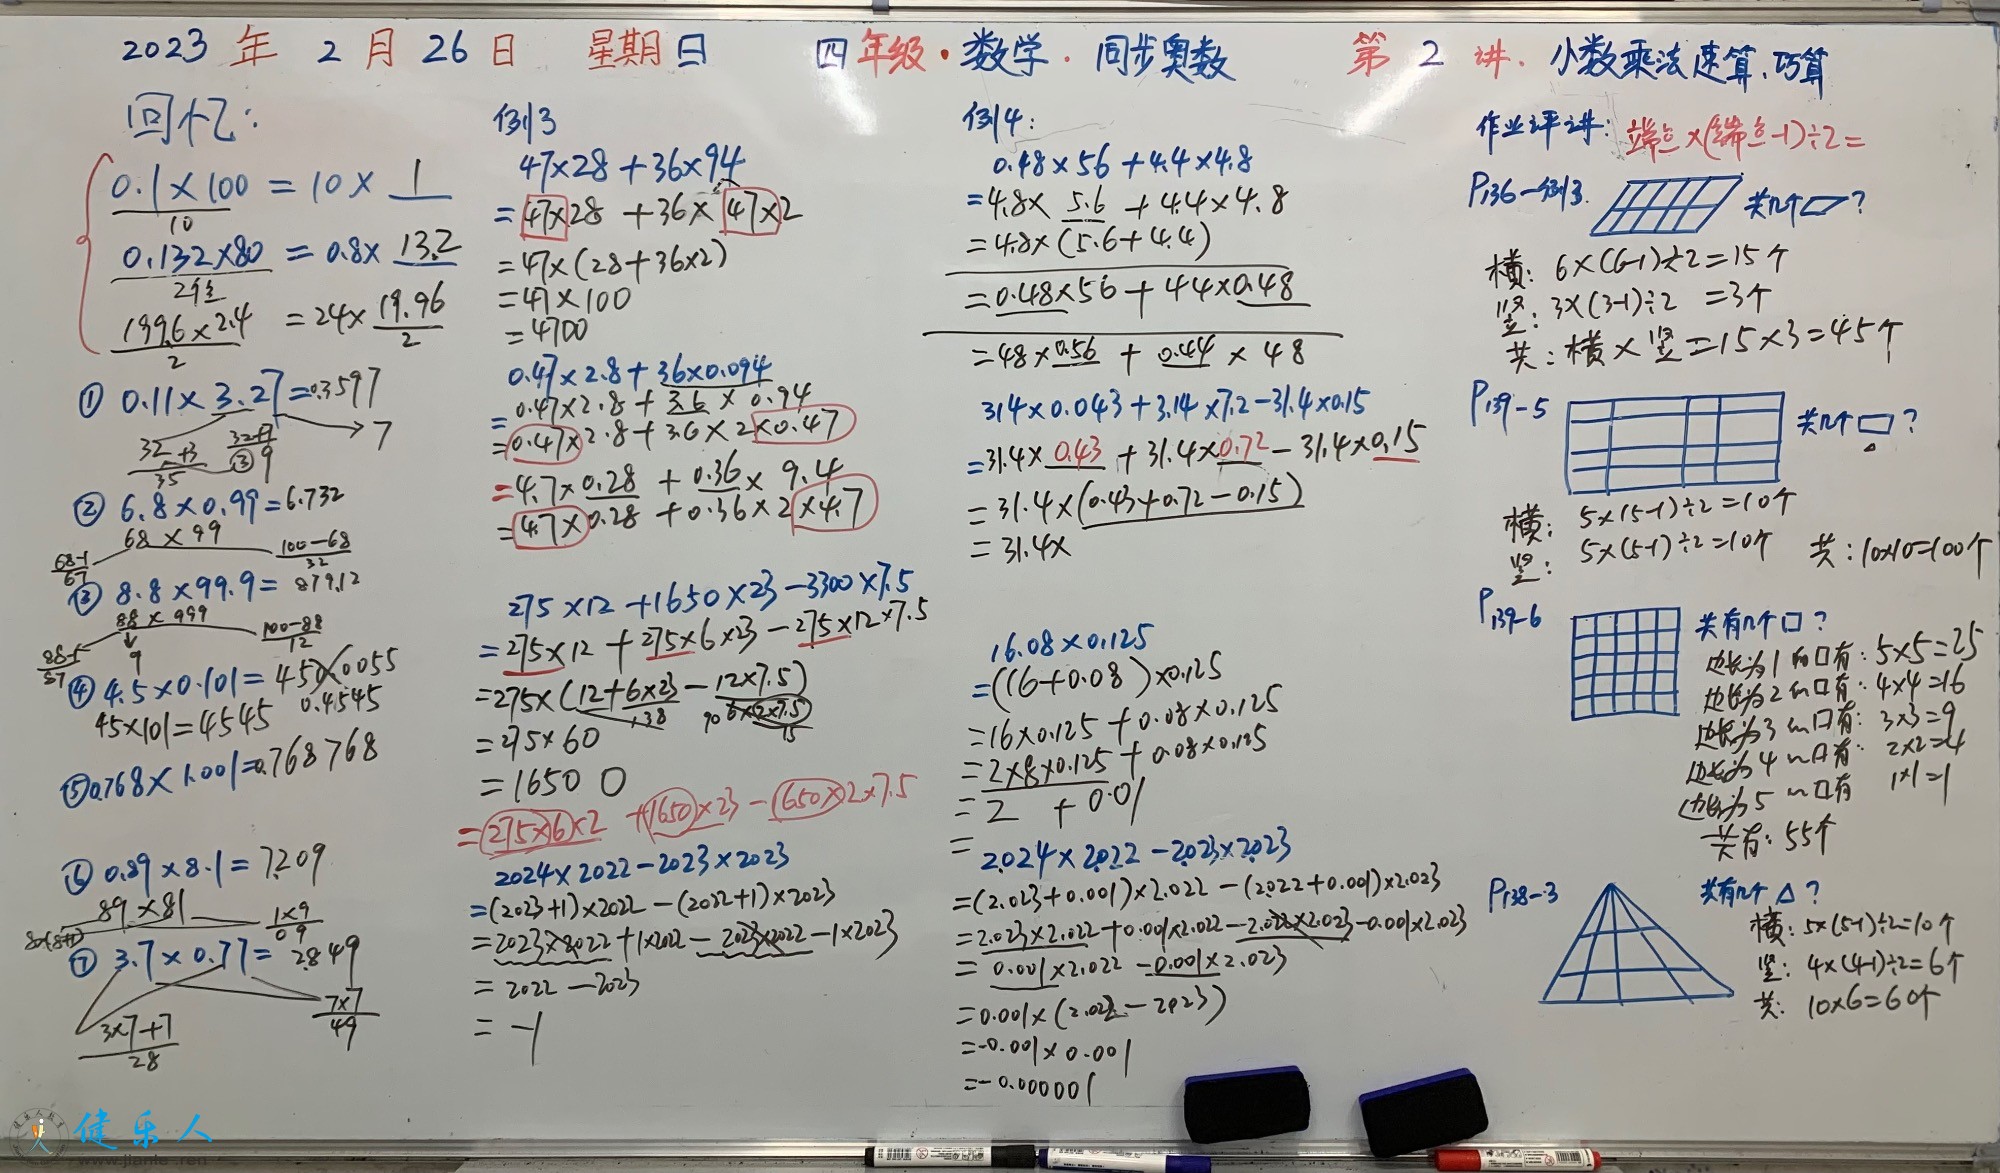 2023 年 2 月 26 日 星期日 四年级·数学·同步奥数 第 2 讲. 小数乘法速算、巧算
回忆:
0.1×100 = 10× 1
10
0.132×80 = 0.8× 13.2
2位
199.6×2.4 = 24× 19.96
2 2
① 0.11×3.27=0.3597
32+3 32+7 → 7
35 ③ 9
② 6.8×0.99=6.732
68×99
68-1 100-68
67 32
③ 8.8×99.9= 879.12
88×999
88-1 9 100-88
87 12
④ 4.5×0.101= 450×0.055
45×101=4545 0.4545
⑤ 0.768×1.001=0.768768
⑥ 0.89×8.1= 7.209
89×81 1×9
8×(8+1) 09
⑦ 3.7×0.77= 2.849
3×7+7 7×7
28 49
例3
47×28+36×94
=47×28+36×47×2
=47×(28+36×2)
=47×100
=4700
0.47×2.8+36×0.094
=0.47×2.8+3.6×0.94
=0.47×2.8+3.6×2×0.47
=4.7×0.28+0.36×9.4
=4.7×0.28+0.36×2×4.7
275×12+1650×23-3300×7.5
=275×12+275×6×23-275×12×7.5
=275×(12+6×23-12×7.5)
138 90 6×2×7.5
15
=275×60
=16500
=275×6×2+1650×23-1650×2×7.5
2024×2022-2023×2023
=(2023+1)×2022-(2022+1)×2023
=2023×2022+1×2022-2023×2022-1×2023
=2022-2023
=-1
例4:
0.48×56+4.4×4.8
=4.8×5.6+4.4×4.8
=4.8×(5.6+4.4)
=0.48×56+44×0.48
=48×0.56+0.44×48
314×0.043+3.14×7.2-31.4×0.15
=31.4×0.43+31.4×0.72-31.4×0.15
=31.4×(0.43+0.72-0.15)
=31.4×
16.08×0.125
=(16+0.08)×0.125
=16×0.125+0.08×0.125
=2×8×0.125+0.08×0.125
=2 +0.01
=
2.024×2.022-2.023×2.023
=(2.023+0.001)×2.022-(2.022+0.001)×2.023
=2.023×2.022+0.001×2.022-2.022×2.023-0.001×2.023
=0.001×2.022-0.001×2.023
=0.001×(2.022-2.023)
=-0.001×0.001
=-0.000001
作业评讲: 端点×(端点-1)÷2=
P136-例3. 共几个▱?
横: 6×(6-1)÷2=15个
竖: 3×(3-1)÷2 =3个
共: 横×竖=15×3=45个
P139-5 共几个▭?
横: 5×(5-1)÷2=10个
竖: 5×(5-1)÷2=10个 共: 10×10=100个
P139-6 共有几个□?
边长为1的□有: 5×5=25
边长为2的□有: 4×4=16
边长为3的□有: 3×3=9
边长为4的□有: 2×2=4
边长为5的□有 1×1=1
共有: 55个
P138-3 共有几个△?
横: 5×(5-1)÷2=10个
竖: 4×(4-1)÷2=6个
共: 10×6=60个
健乐人
www.jianle.ren